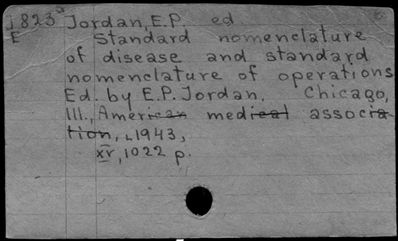 j823 Jordan, E.P. ed
E Standard nomenclature
of disease and standard
nomenclature of operations
Ed. by E.P. Jordan. Chicago,
Ill., American medical associa-
tion, c1943,
xv, 1022 p.